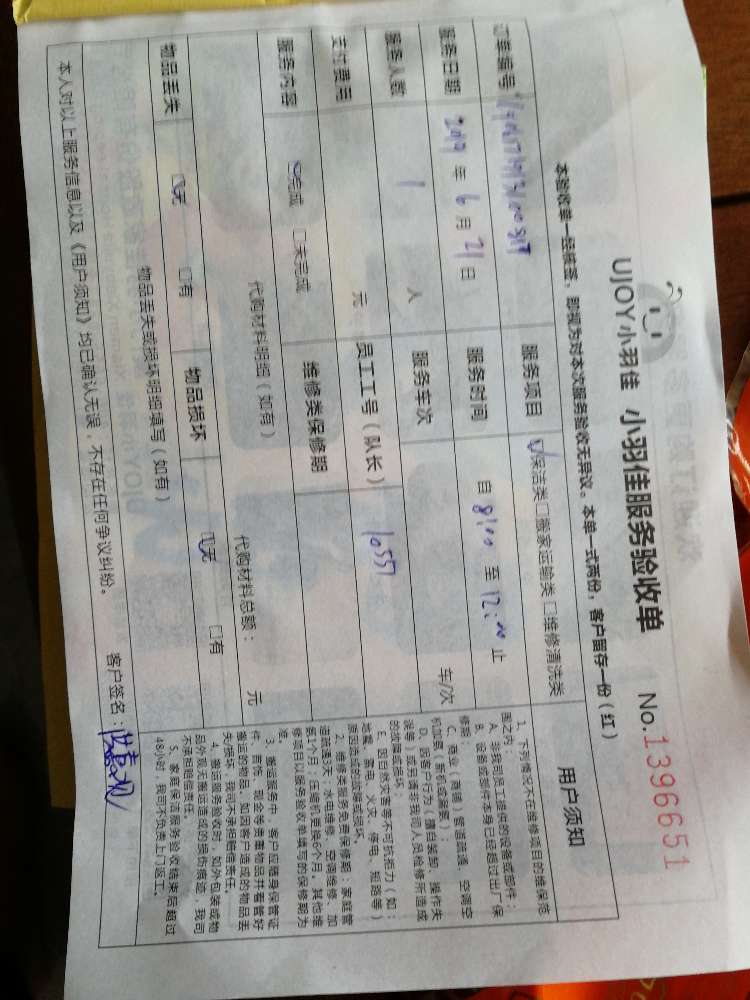 UJOY小羽佳 小羽佳服务验收单 No.1396651
本验收单一经核签，即视为对本次服务验收无异议。本单一式两份，客户留存一份（红）
订单编号 服务项目 ☑保洁类□搬家运输类□维修清洗类
服务日期 2019年6月21日 服务时间 自8:00至12:00止
服务人数 1人 服务车次 车/次
支付费用 元 员工工号（队长） 10557
服务内容 ☑完成 □未完成 维修类保修期
代购材料明细（如有） 代购材料总额： 元
物品丢失 ☑无 □有 物品损坏 ☑无 □有
物品丢失或损坏明细填写（如有）
本人对以上服务信息以及《用户须知》均已确认无误，不存在任何争议纠纷。 客户签名：
用户须知
1、下列情况不在维修项目的维保范
围之内：
A、非我司员工提供的设备或部件；
B、设备或部件本身已经超过出厂保
修期；
C、商业（商铺）管道疏通、空调空
机加氨（新机或漏氨）；
D、因客户行为（擅自装卸、操作失
误等）或另请非我司人员检修所造成
的故障或损坏；
E、因自然灾害等不可抗拒力（如：
地震、雷电、火灾、停电、短路等）
原因造成的故障或损坏。
2、维修类服务免费保修期：家庭管
道疏通3天，水电维修、空调维修、加
氨1个月；压缩机更换6个月。其他维
修项目以服务验收单填写的保修期为
准。
3、搬运服务中，客户应随身保管证
件、首饰、现金等贵重物品并看管好
搬运的物品，如因客户造成的物品丢
失/损坏，我司不承担赔偿责任。
4、搬运服务验收时，如外包装或物
品外观无搬运造成的损伤痕迹，我司
不承担赔偿责任。
5、家庭保洁服务验收结束后超过
48小时，我司不负责上门返工。